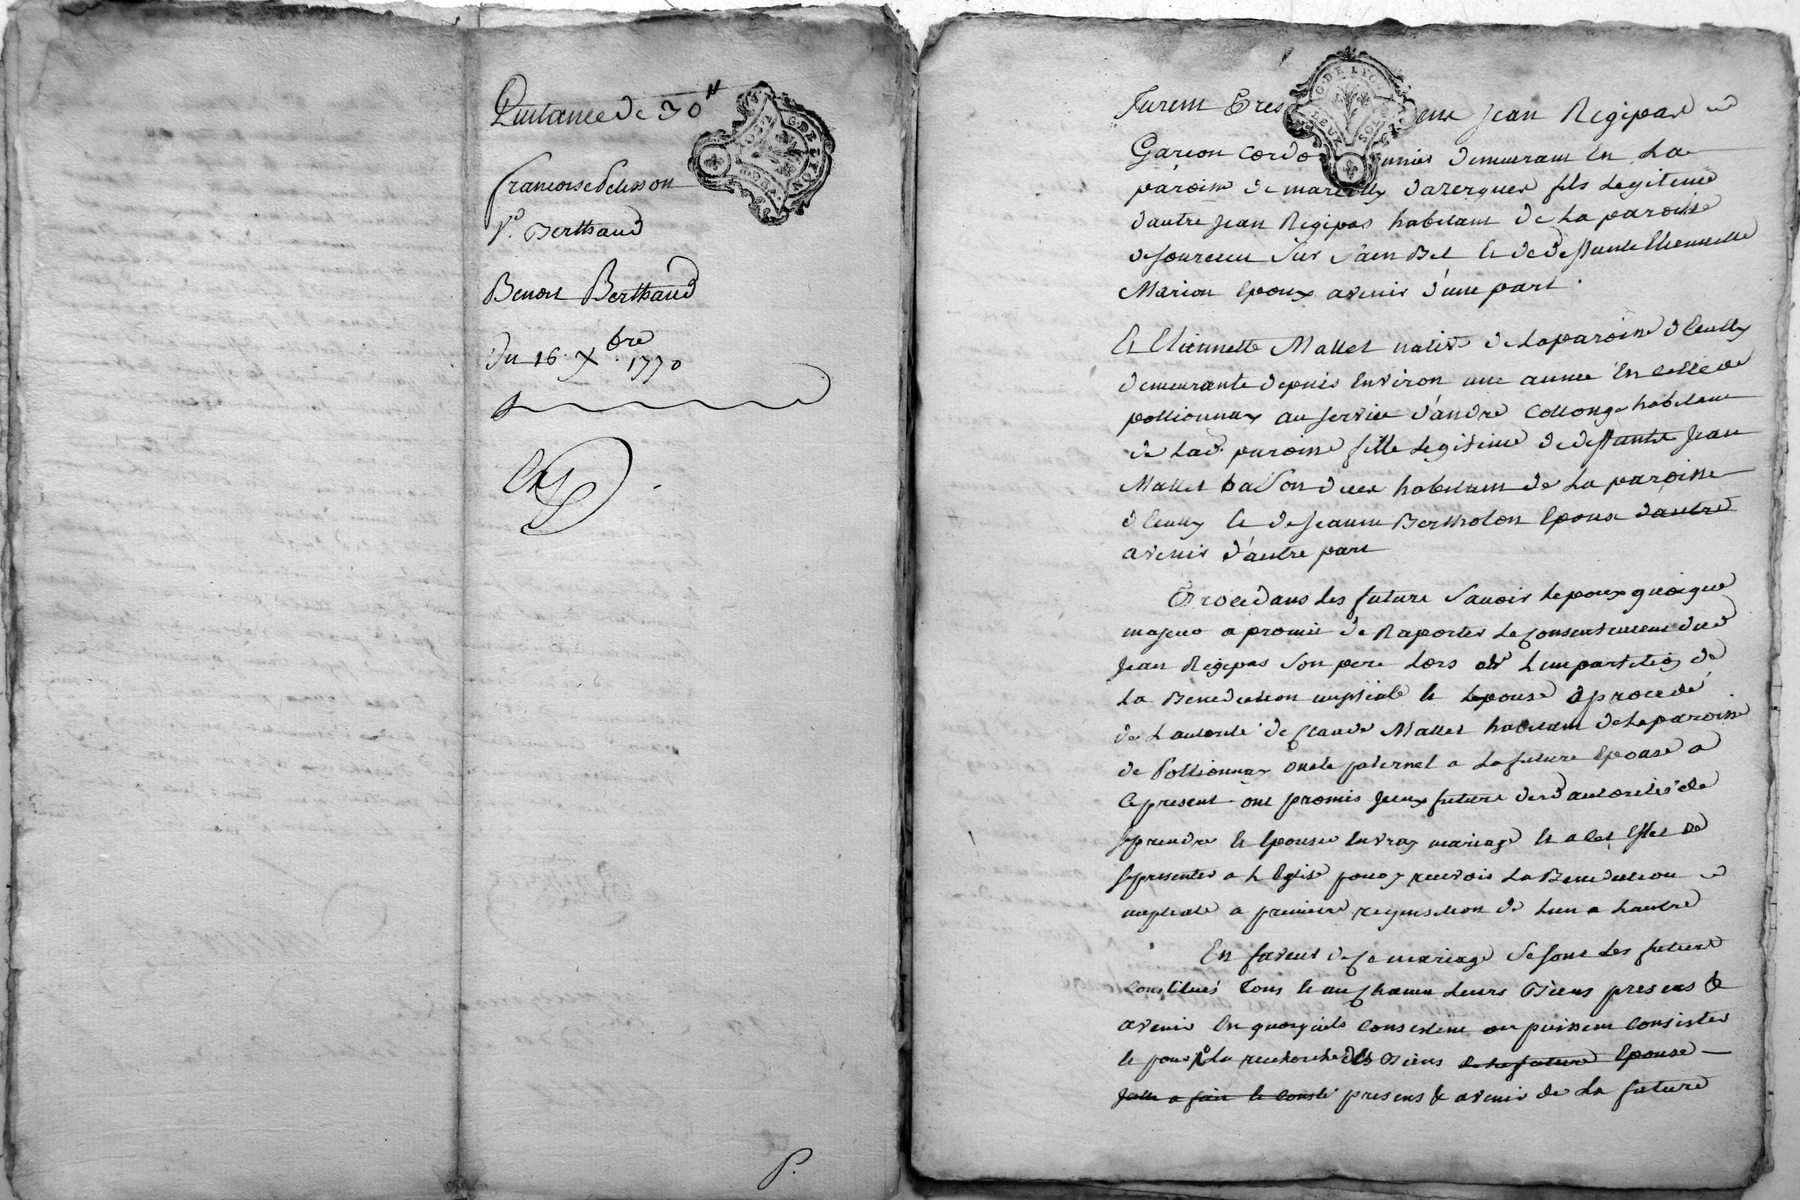 Quittance de 30ᴸᴸ
francoise Pelisson
Vᵉ. Berthaud
Benoit Berthaud
Du 16. Xbre 1770
P.
G. DE LYON
G. DE LYON
furent Pres jean Régipas
Garcon cordo demeurant En La
paroisse de marcilly dazergues fils Legitime
dautre jean Régipas habitant de La paroisse
de sourcieu sur sain Bel & de deffunte Etiennette
Marion Epoux avenir d'une part.
Et Etiennette Mallet native de La paroisse d'Eculy
demeurante depuis Environ une année En celle de
pollionnay au service d'andré Collonge habitant
de Lad. paroisse fille Legitime de deffunts jean
Mallet habitant de La paroisse
d'Eculy & de jeanne Bertholon Epouse dautre
avenir d'autre part
Procedans Les future savoir Lepoux quoique
majeur a promis de Raporter Le Consentement dud
jean Régipas son pere Lors de Limpartition de
La Benediction nuptiale & Lepouse procedé
de Lautorité de Claude Mallet habitant de La paroisse
de Pollionnay oncle paternel a La future Epouse a
Ce present ont promis future autorités de
se prendre & Epouser En vray mariage & a cet Effet de
se presenter a L'Eglise pour y recevoir La Benediction
nuptiale a premiere requisition de Lun a Lautre
En faveur de Ce mariage se sont Les future
Constitués Tous & un Chacun Leurs Biens presens &
avenir En quoy qu'ils Consistent ou puissent Consister
& pour La recherche des Biens de La future Epouse
presens & avenir de La future